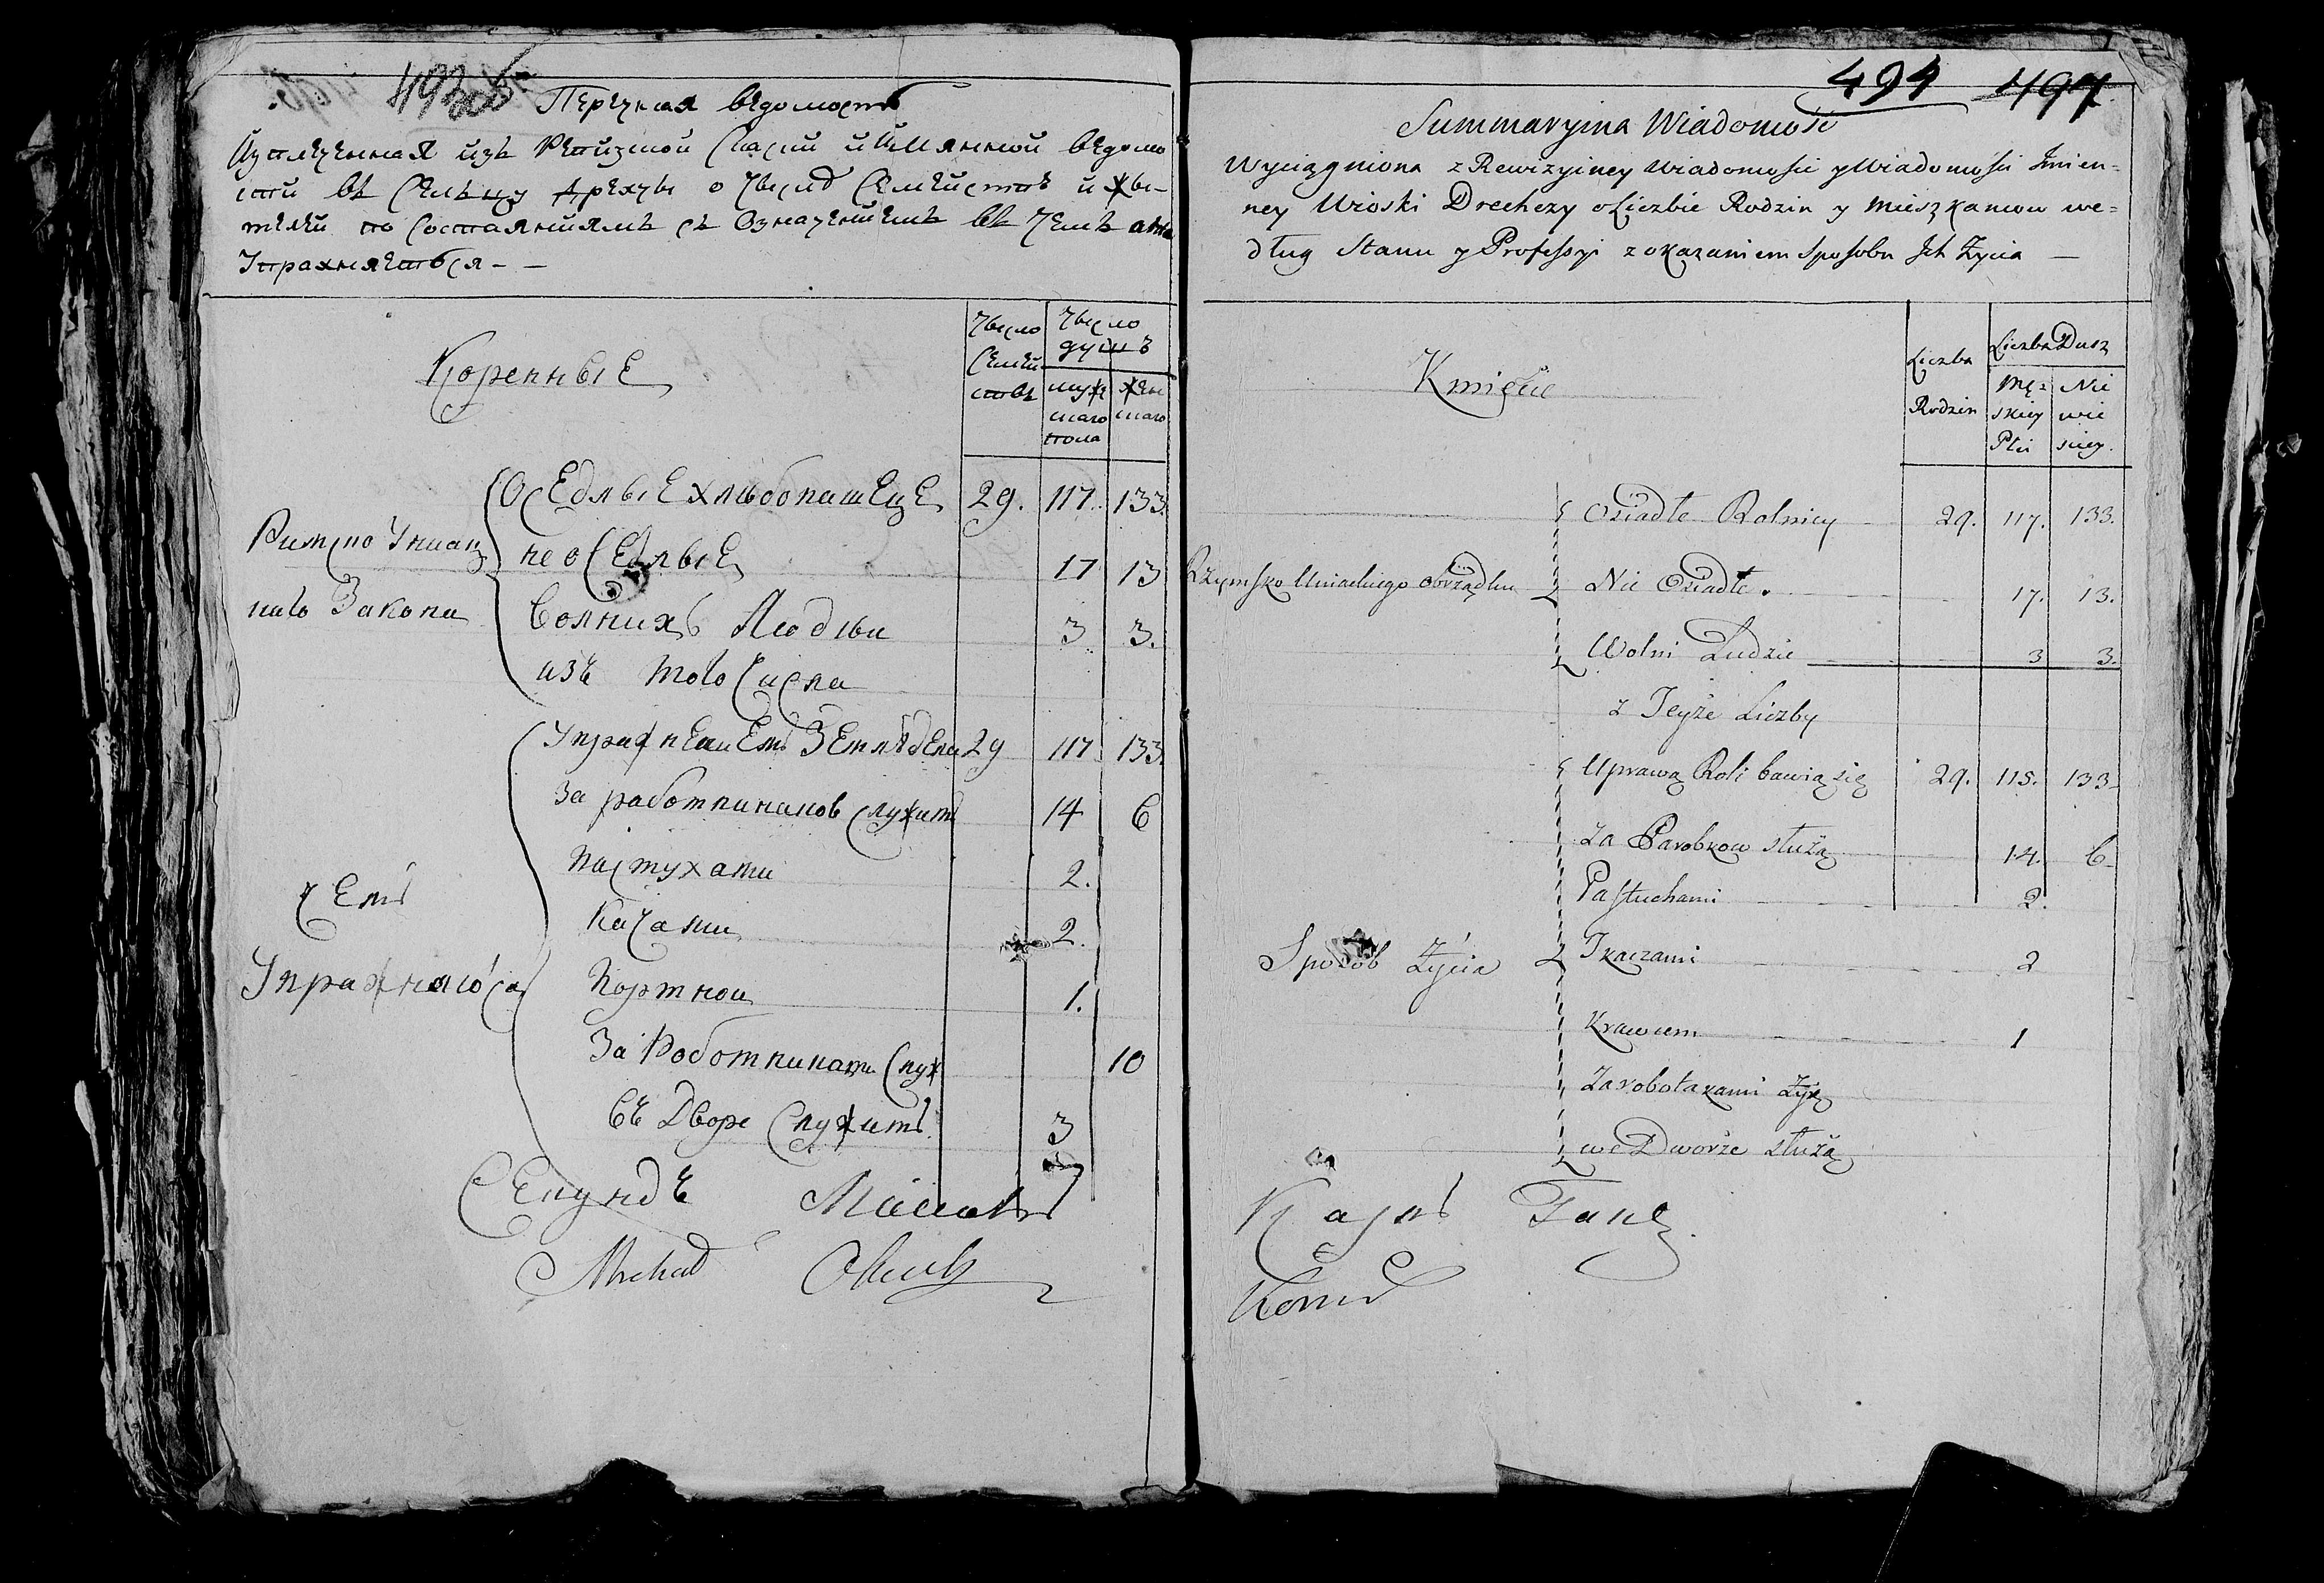 Перечная вѣдомость
из Ревизской Скаски и Имянной вѣдомо
сти въ Сельцу Дрехчы о Числѣ Семействъ и жы-
телей по Состаяниямъ съ Означениемъ въ Чемъ
Упражняеться - -
Коренные
Чысло Семей ствъ
Чысло душъ
мужескаго пола
женскаго
Римско Униац каго Закона
Оседлые хлѣбопашеце 29. 117. 133.
не оседлые 17 13
Волнихъ Людѣи 3 3.
изъ того Числа
Чемъ Упражняюца
29 117. 133.
За работникановъ служитъ 14 6
Пастухами 2.
Качами 2.
Портной 1.
За Роботниками Служ 10
въ Дворе служитъ 3
Секундъ
Michał
494 497
Summaryina Wiadomość
Wyciągniona z Rewizyiney Wiadomości y Wiadomości Imien=
ney Wioski Drechczy o Liczbie Rodzin y Mieszkancow we=
dług Stanu y Professyi z okazaniem Sposobu Ich Życia —
Kmiecie
Liczba Rodzin
Liczba Dusz
Męz skiey Płci
Nie wie sciey.
Rzymsko Uniackiego Obrządku
Osiadłe Rolnicy 29. 117. 133.
Nie Osiadłe. 17. 13.
Wolni Ludzie 3 3.
z Teyże Liczby
Sposób Życia
Uprawą Roli bawią się 29. 115. 133
Za Parobkow służą 14. 6
Pastuchami 2.
Tkaczami 2
Krawcem 1
Zarobotakami Żyją
we Dworze służą